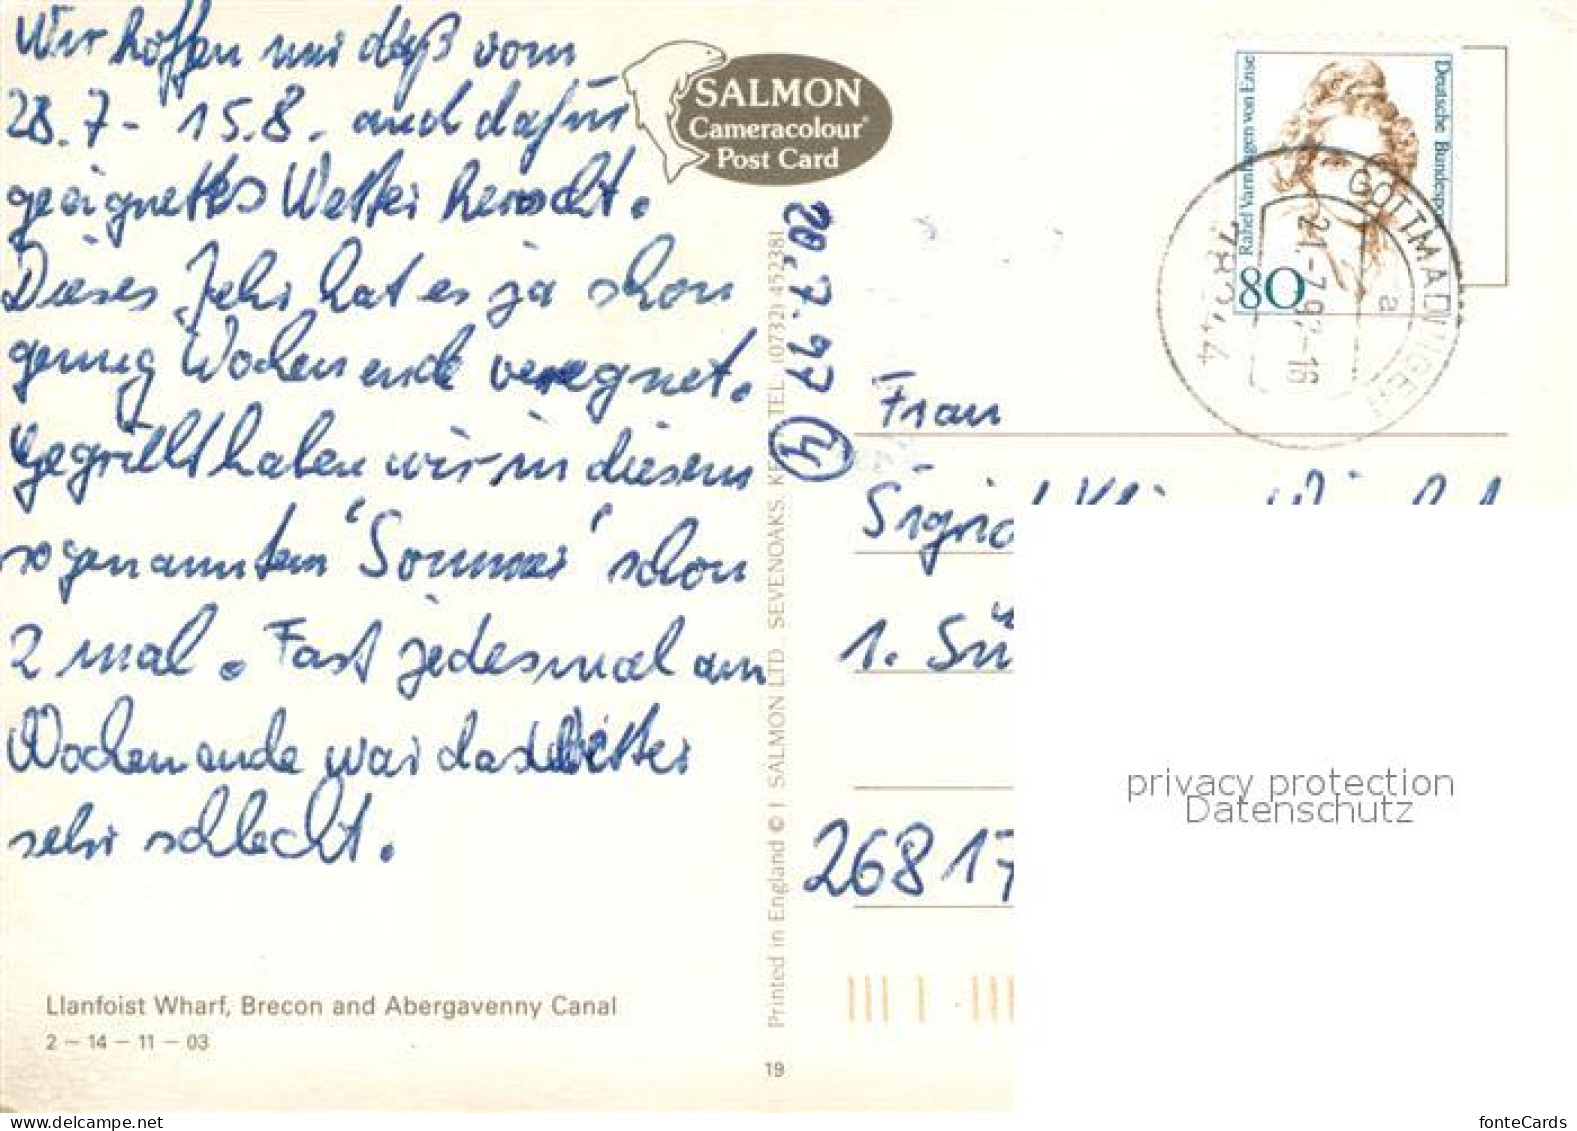 Wir hoffen nur daß vom
28.7 - 15.8. auch dafür
geeignetes Wetter herscht.
Dieses Jahr hat es ja schon
genug Wochenende veregnet.
Gegrillt haben wir in diesem
sogenanntem 'Sommer' schon
2 mal. Fast jedesmal am
Wochenende war das Wetter
sehr schlecht.
Llanfoist Wharf, Brecon and Abergavenny Canal
2 – 14 – 11 – 03
SALMON
Cameracolour®
Post Card
20.7.97 (4)
Printed in England © J SALMON LTD SEVENOAKS TEL (0732) 452381
19
Rahel Varnhagen von Ense
80
GOTTMADINGEN
78244
21.-7.97-16
a
Frau
Sigrid
1. Sü
26817
privacy protection
Datenschutz
fonteCards